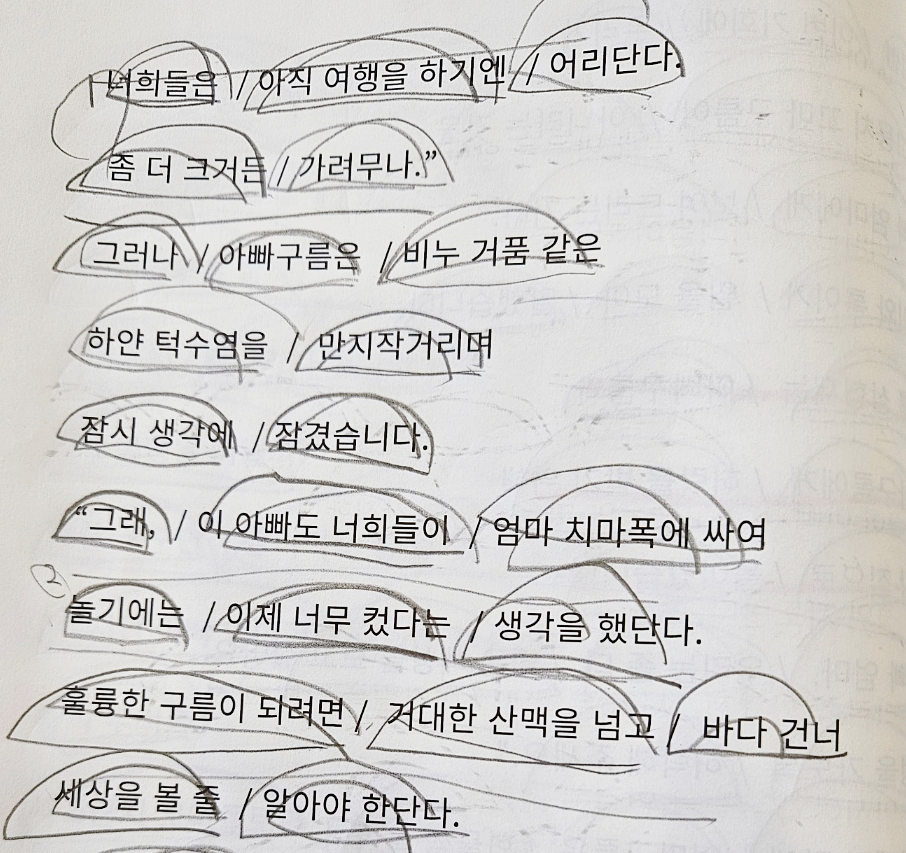 너희들은 / 아직 여행을 하기엔 / 어리단다.
좀 더 크거든 / 가려무나.”
그러나 / 아빠구름은 / 비누 거품 같은
하얀 턱수염을 / 만지작거리며
잠시 생각에 / 잠겼습니다.
“그래, / 이 아빠도 너희들이 / 엄마 치마폭에 싸여
②
놀기에는 / 이제 너무 컸다는 / 생각을 했단다.
훌륭한 구름이 되려면 / 거대한 산맥을 넘고 / 바다 건너
세상을 볼 줄 / 알아야 한단다.